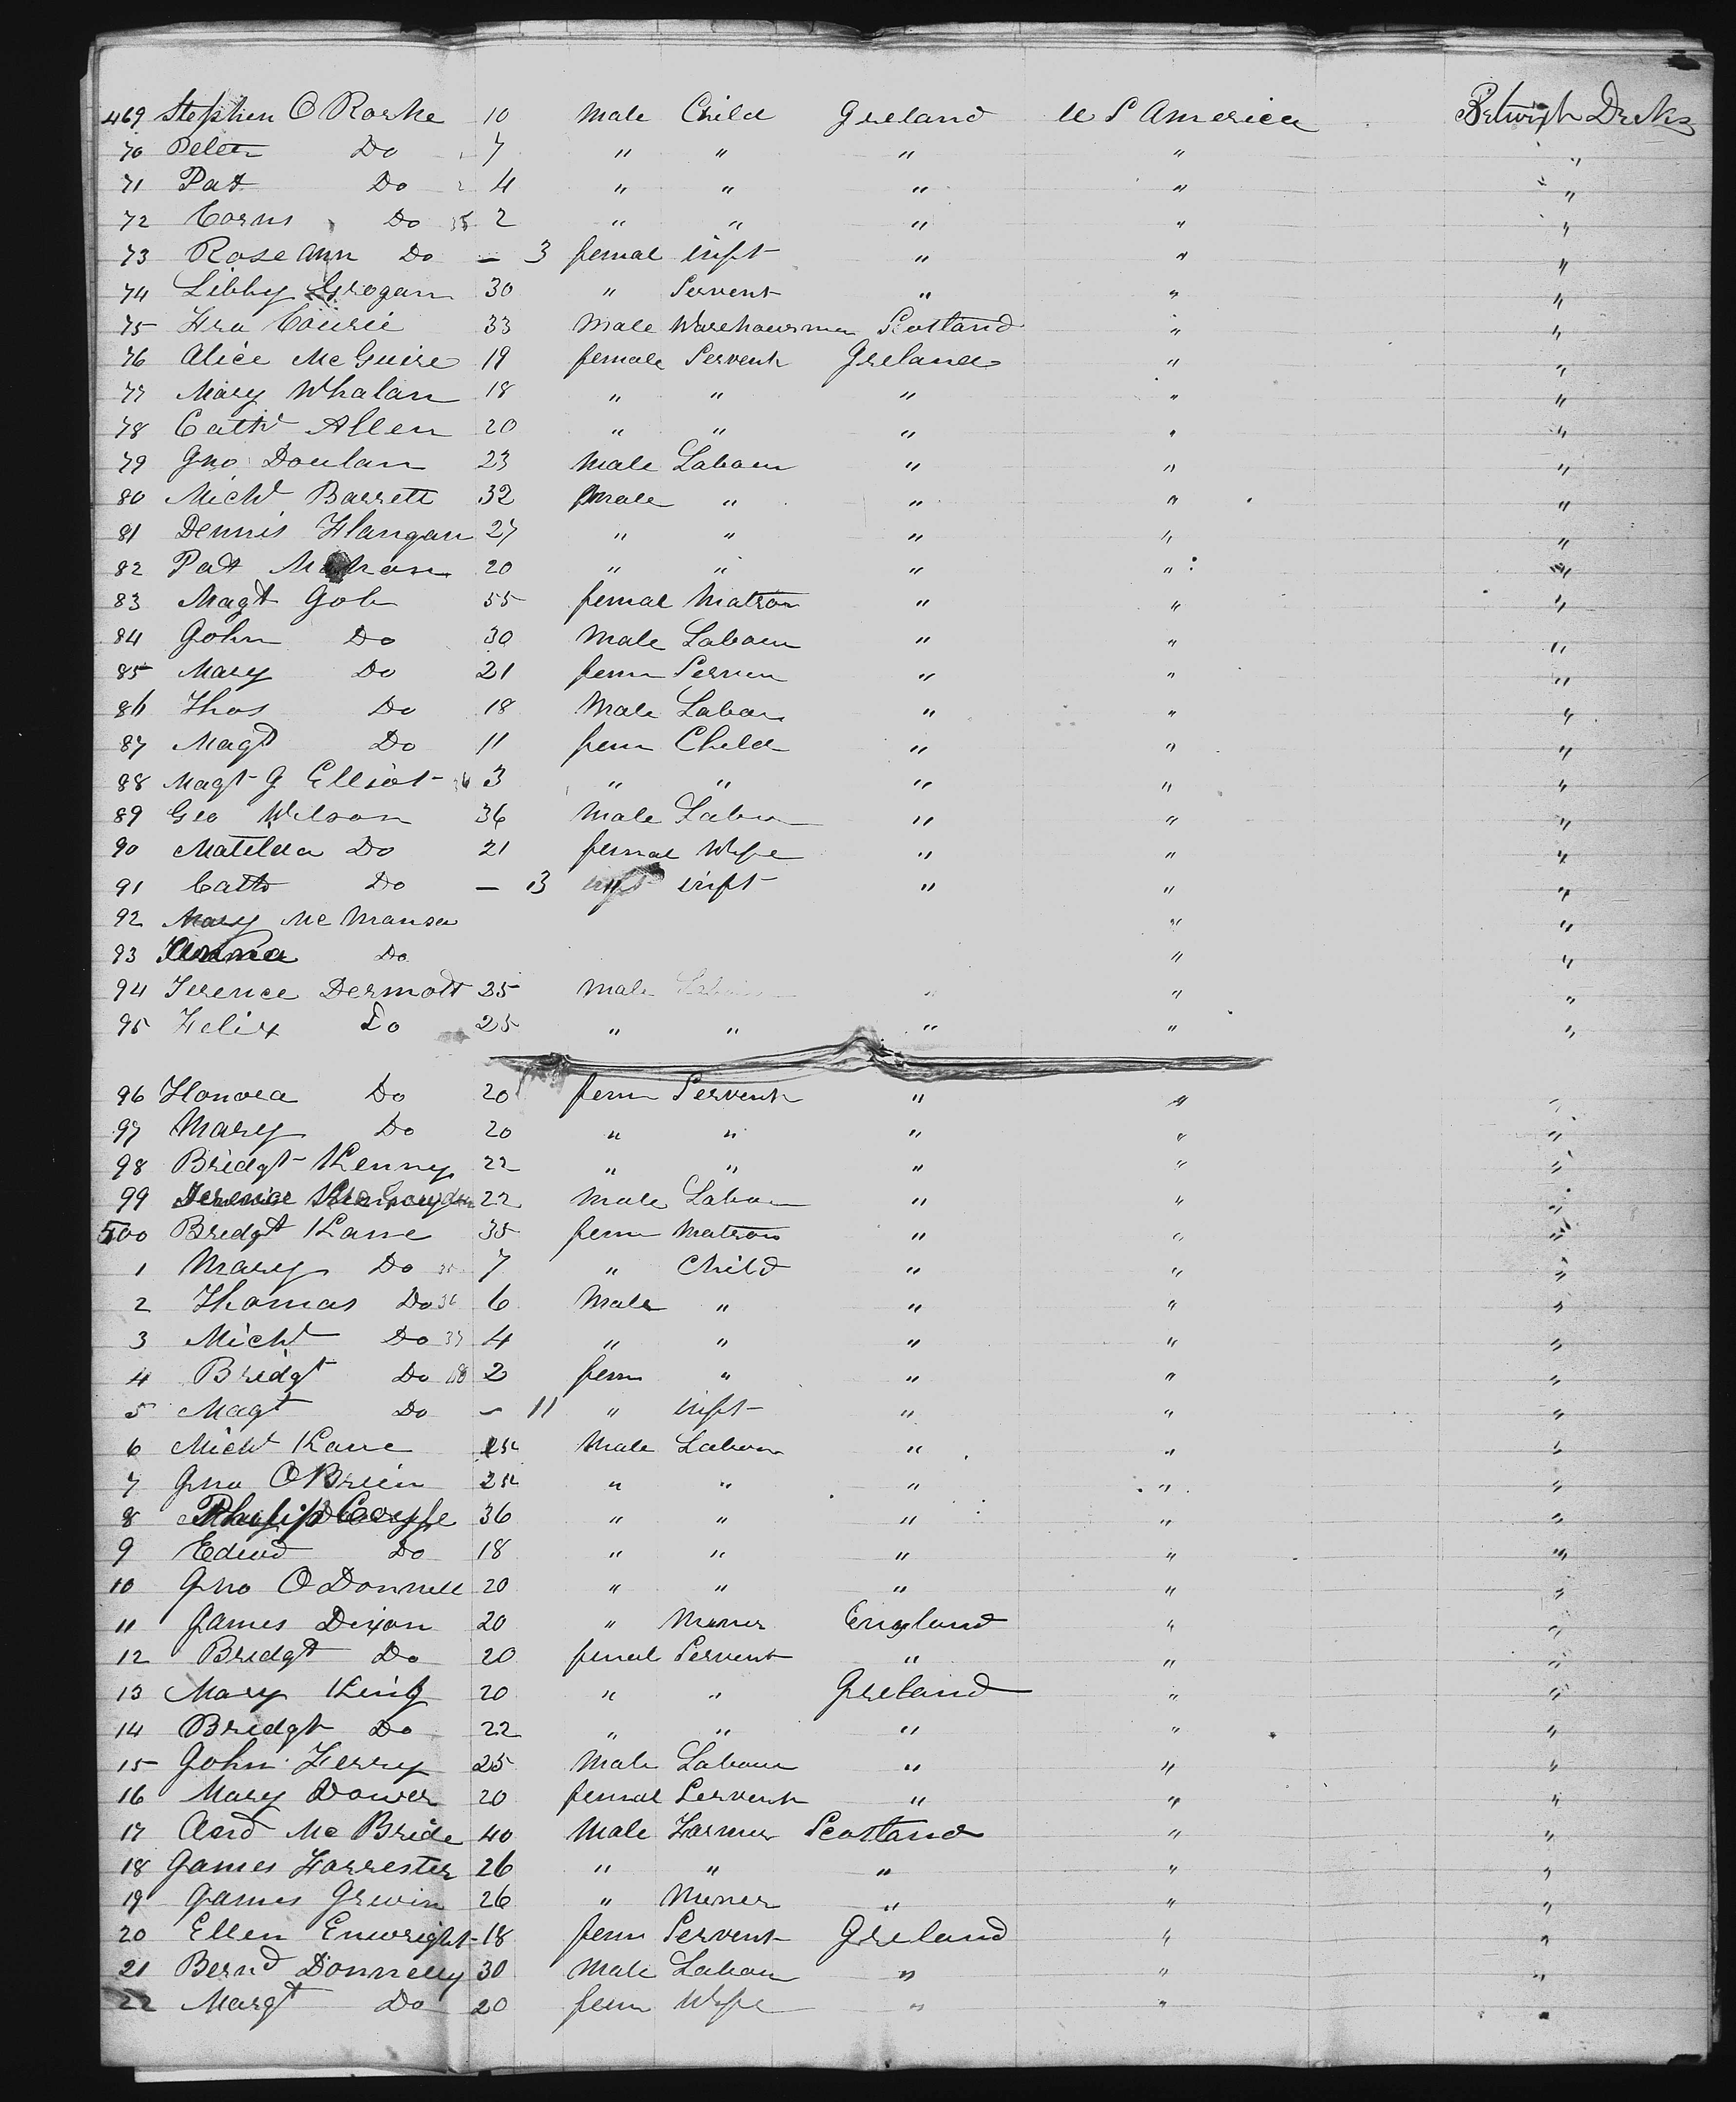 469 Stephen O Rorke 10 Male Child Ireland U S America Betwixt Decks
70 Peter Do 7 " " " " "
71 Pat Do 4 " " " " "
72 Corns Do 2 " " " " "
73 Rose Ann Do - 3 femal inft " " "
74 Libby Grogan 30 " Servent " " "
75 Fra Courie 33 Male Warehousman Scotland " "
76 Alice McGuire 19 female Servent Ireland " "
77 Mary Whalan 18 " " " " "
78 Cathr Allen 20 " " " " "
79 Jno Doulan 23 Male Labour " " "
80 Michl Barrett 32 Male " " " "
81 Dennis Flangan 27 " " " " "
82 Pat 20 " " " " "
83 Magt 55 femal Matron " " "
84 John Do 30 Male Labour " " "
85 Mary Do 21 fem Serven " " "
86 Thos Do 18 Male Labou " " "
87 Magt Do 11 fem Child " " "
88 Magt J Elliot 3 " " " " "
89 Geo Wilson 36 Male Labou " " "
90 Matilda Do 21 femal Wife " " "
91 Cath Do - 3 " inft " " "
92 Mary Mc Manson " "
93 Do " "
94 Terence Dermott 25 Male " " "
95 Felix Do 25 " " " " "
96 Honora Do 20 fem Servent " " "
97 Mary Do 20 " " " " "
98 Bridgt Kenny 22 " " " " "
99 22 Male Labou " " "
500 Bredgt Kane 35 fem Matron " " "
1 Mary Do 7 " Child " " "
2 Thomas Do 36 6 Male " " " "
3 Michl Do 37 4 " " " " "
4 Bridgt Do 38 2 fem " " " "
5 Magt Do - 11 " inft " " "
6 Michl Kane Male Labour " " "
7 Jno OBrien " " " " "
8 36 " " " " "
9 Edwd Do 18 " " " " "
10 Jno O Donnell 20 " " " " "
11 James Dixon 20 " Miner England " "
12 Bredgt Do 20 femal Servent " " "
13 Mary King 20 " " Ireland " "
14 Bredgt Do 22 " " " " "
15 John Ferry 25 Male Labour " " "
16 Mary Dower 20 femal Servent " " "
17 Mc Bride 40 Male Farmer Scotland " "
18 James Forrester 26 " " " " "
19 James Irwin 26 " Miner " " "
20 Ellen Enwright 18 fem Servent Ireland " "
21 Bernd Donnelly 30 Male Labour " " "
22 Margt Do 20 fem Wife " " "